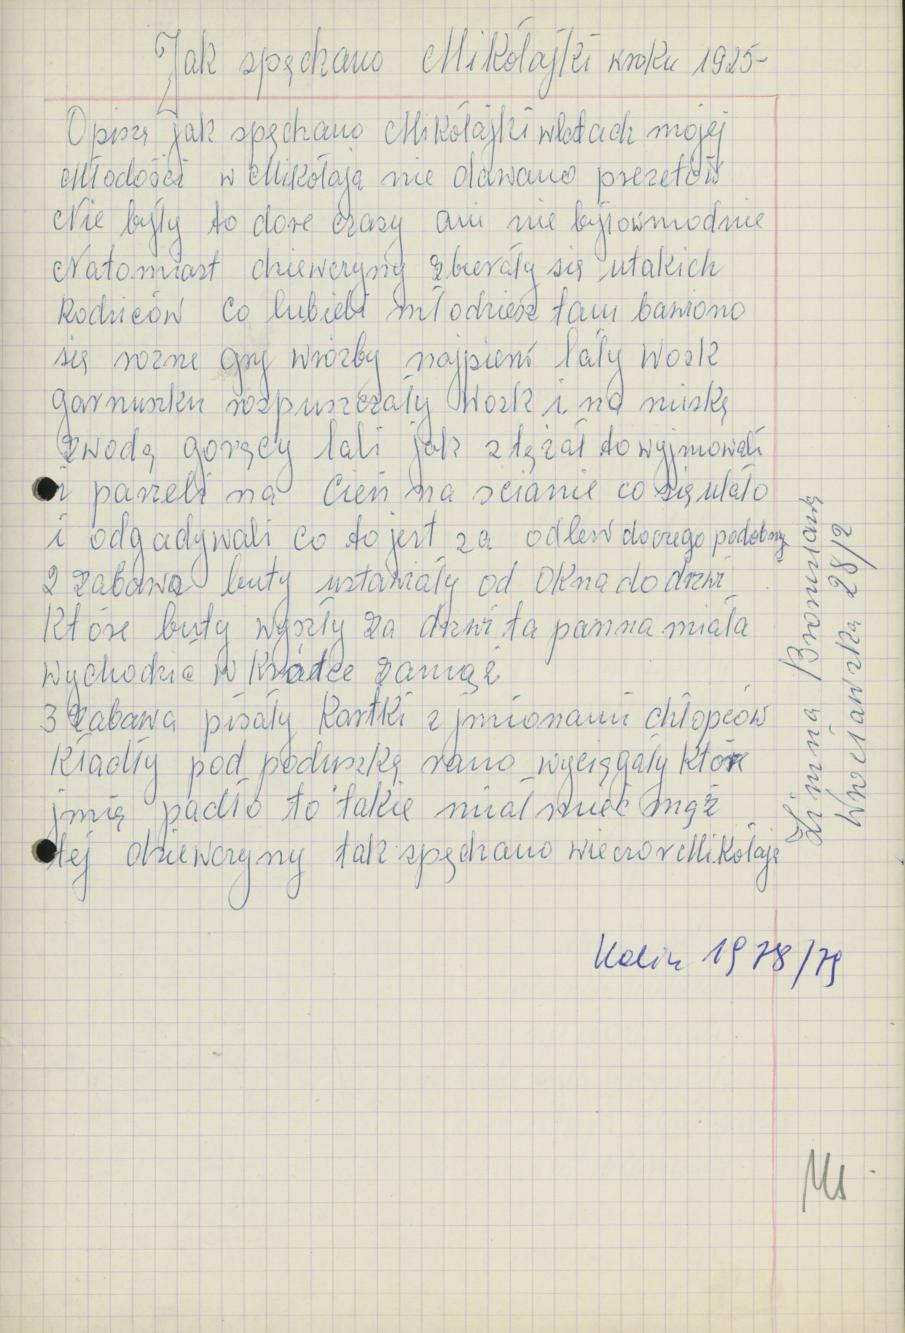 Jak spęchano Mikołajki wroku 1925-
Opiszę jak spęchano Mikołajki wlatach mojej
Młodości w Mikołaja nie dawano prezetów
Nie były to dore czasy ani nie byłowmodnie
Natomiast dziewczyny zbierały się utakich
Rodziców co lubieli młodzież tam bawiono
się rozne gry wrózby najpierw lały wosk
garnuszku rozpuszczały wosk i na miskę
zwodą gorący lali jak stężał to wyjmowali
i parzeli na cień na scianie co się ulało
i odgadywali co to jest za odlew doczego podobny
2 zabawa buty ustawiały od okna do drzwi
Które buty wyszły za drzwi ta panna miała
wychodzić w krótce zamąż
3 zabawa pisały kartki z jmionami chłopców
Kładły pod poduszkę rano wyciągały które
jmię padło to takie miał mieć mąż
tej dziewczyny tak spęchano wieczor Mikołaja
Kolin 1978/79
Zimna Bronisława
Wrocławska 28/2